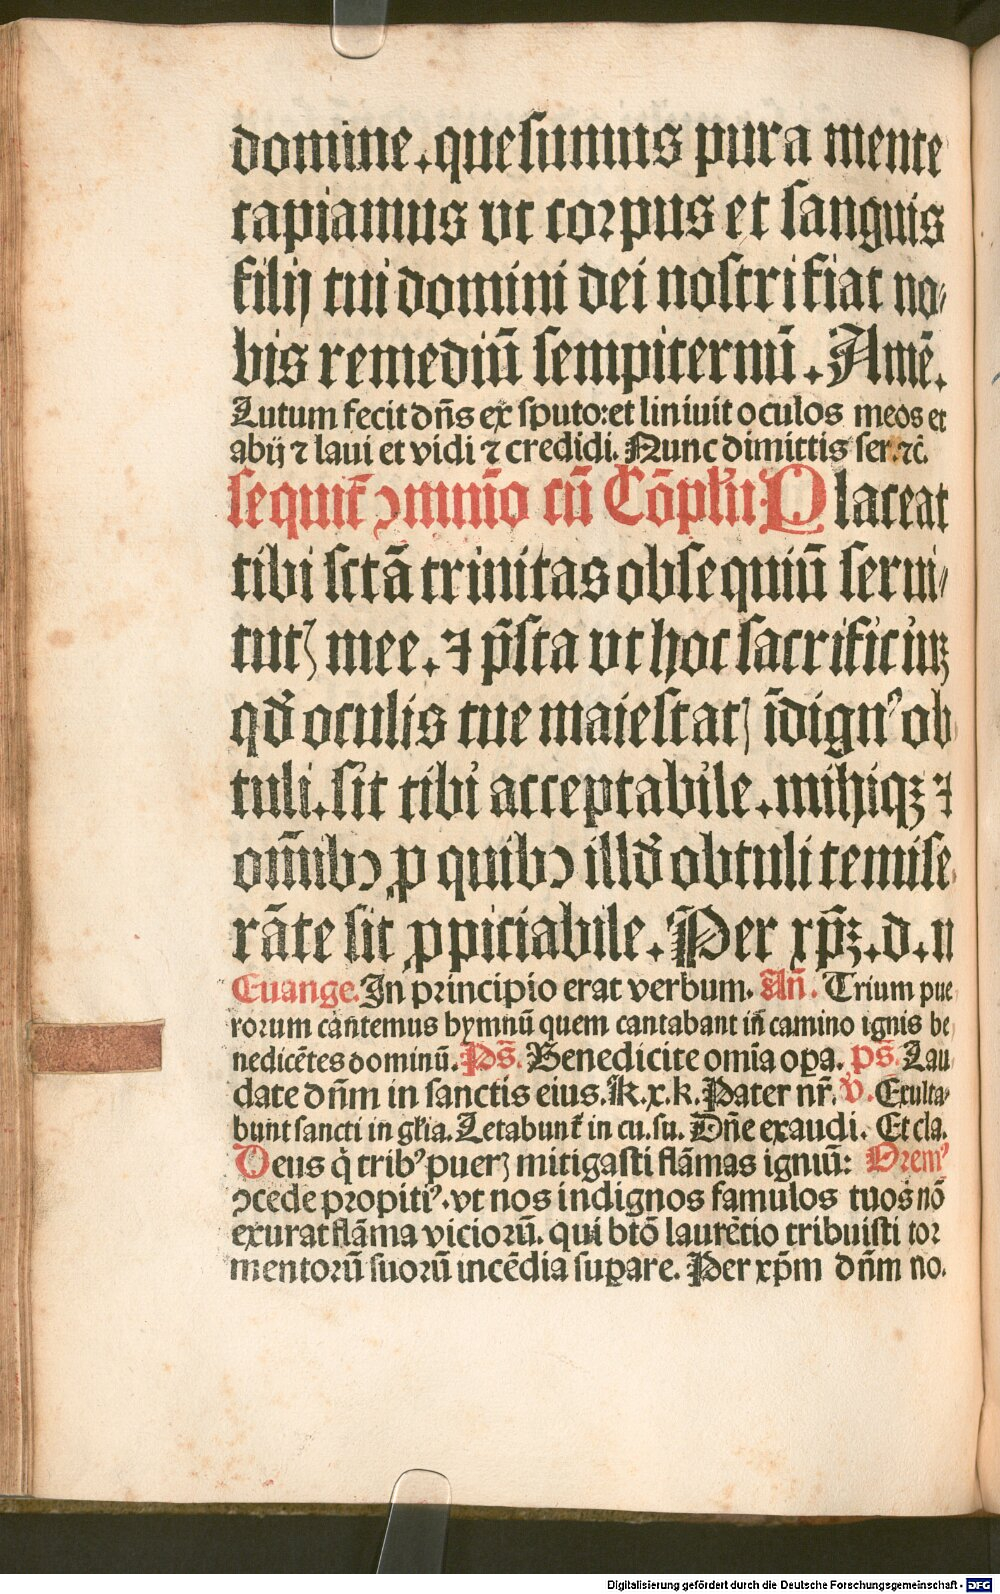 domine.quesumus pura mente
capiamus vt corpus et sanguis
filij tui domini dei nostri fiat no⸗
bis remediū sempiternū. Amē.
Lutum fecit dn̄s ex sputo:et liniuit oculos meos et
abij ⁊ laui et vidi ⁊ credidi. Nunc dimittis ser.⁊c̄.
cū Placeat
tibi sctā trinitas obsequiū serui⸗
tutꝭ mee. ⁊ p̄sta vt hoc sacrificiuꝫ
qd̄ oculis tue maiestatꝭ īdignꝰ ob
tuli.sit tibi acceptabile.mihiqꝫ ⁊
om̄ibꝰ ꝓ quibꝰ illd̄ obtuli te mise
rāte sit ꝓpiciabile. Per xp̄ꝫ.d.n
Euange. In principio erat verbum. An̄. Trium pue
rorum cantemus hymnū quem cantabant in̄ camino ignis be
nedicētes dominū. Ps̄. Benedicite omīa oꝑa. ps̄. Lau
date dn̄m in sanctis eius. K.x.k. Pater nr̄. v̓. Exulta⸗
bunt sancti in gl̓ia. Letabunt̄ in cu.su. Dn̄e exaudi. Et cla.
Deus q̄ tribꝰ puerꝭ mitigasti flāmas igniū: Oremꝰ
ꝯcede propitiꝰ.vt nos indignos famulos tuos nō
exurat flāma viciorū. qui btō laurētio tribuisti tor
mentorū suorū incēdia suꝑare. Per xp̄m dn̄m no.
Digitalisierung gefördert durch die Deutsche Forschungsgemeinschaft - DFG